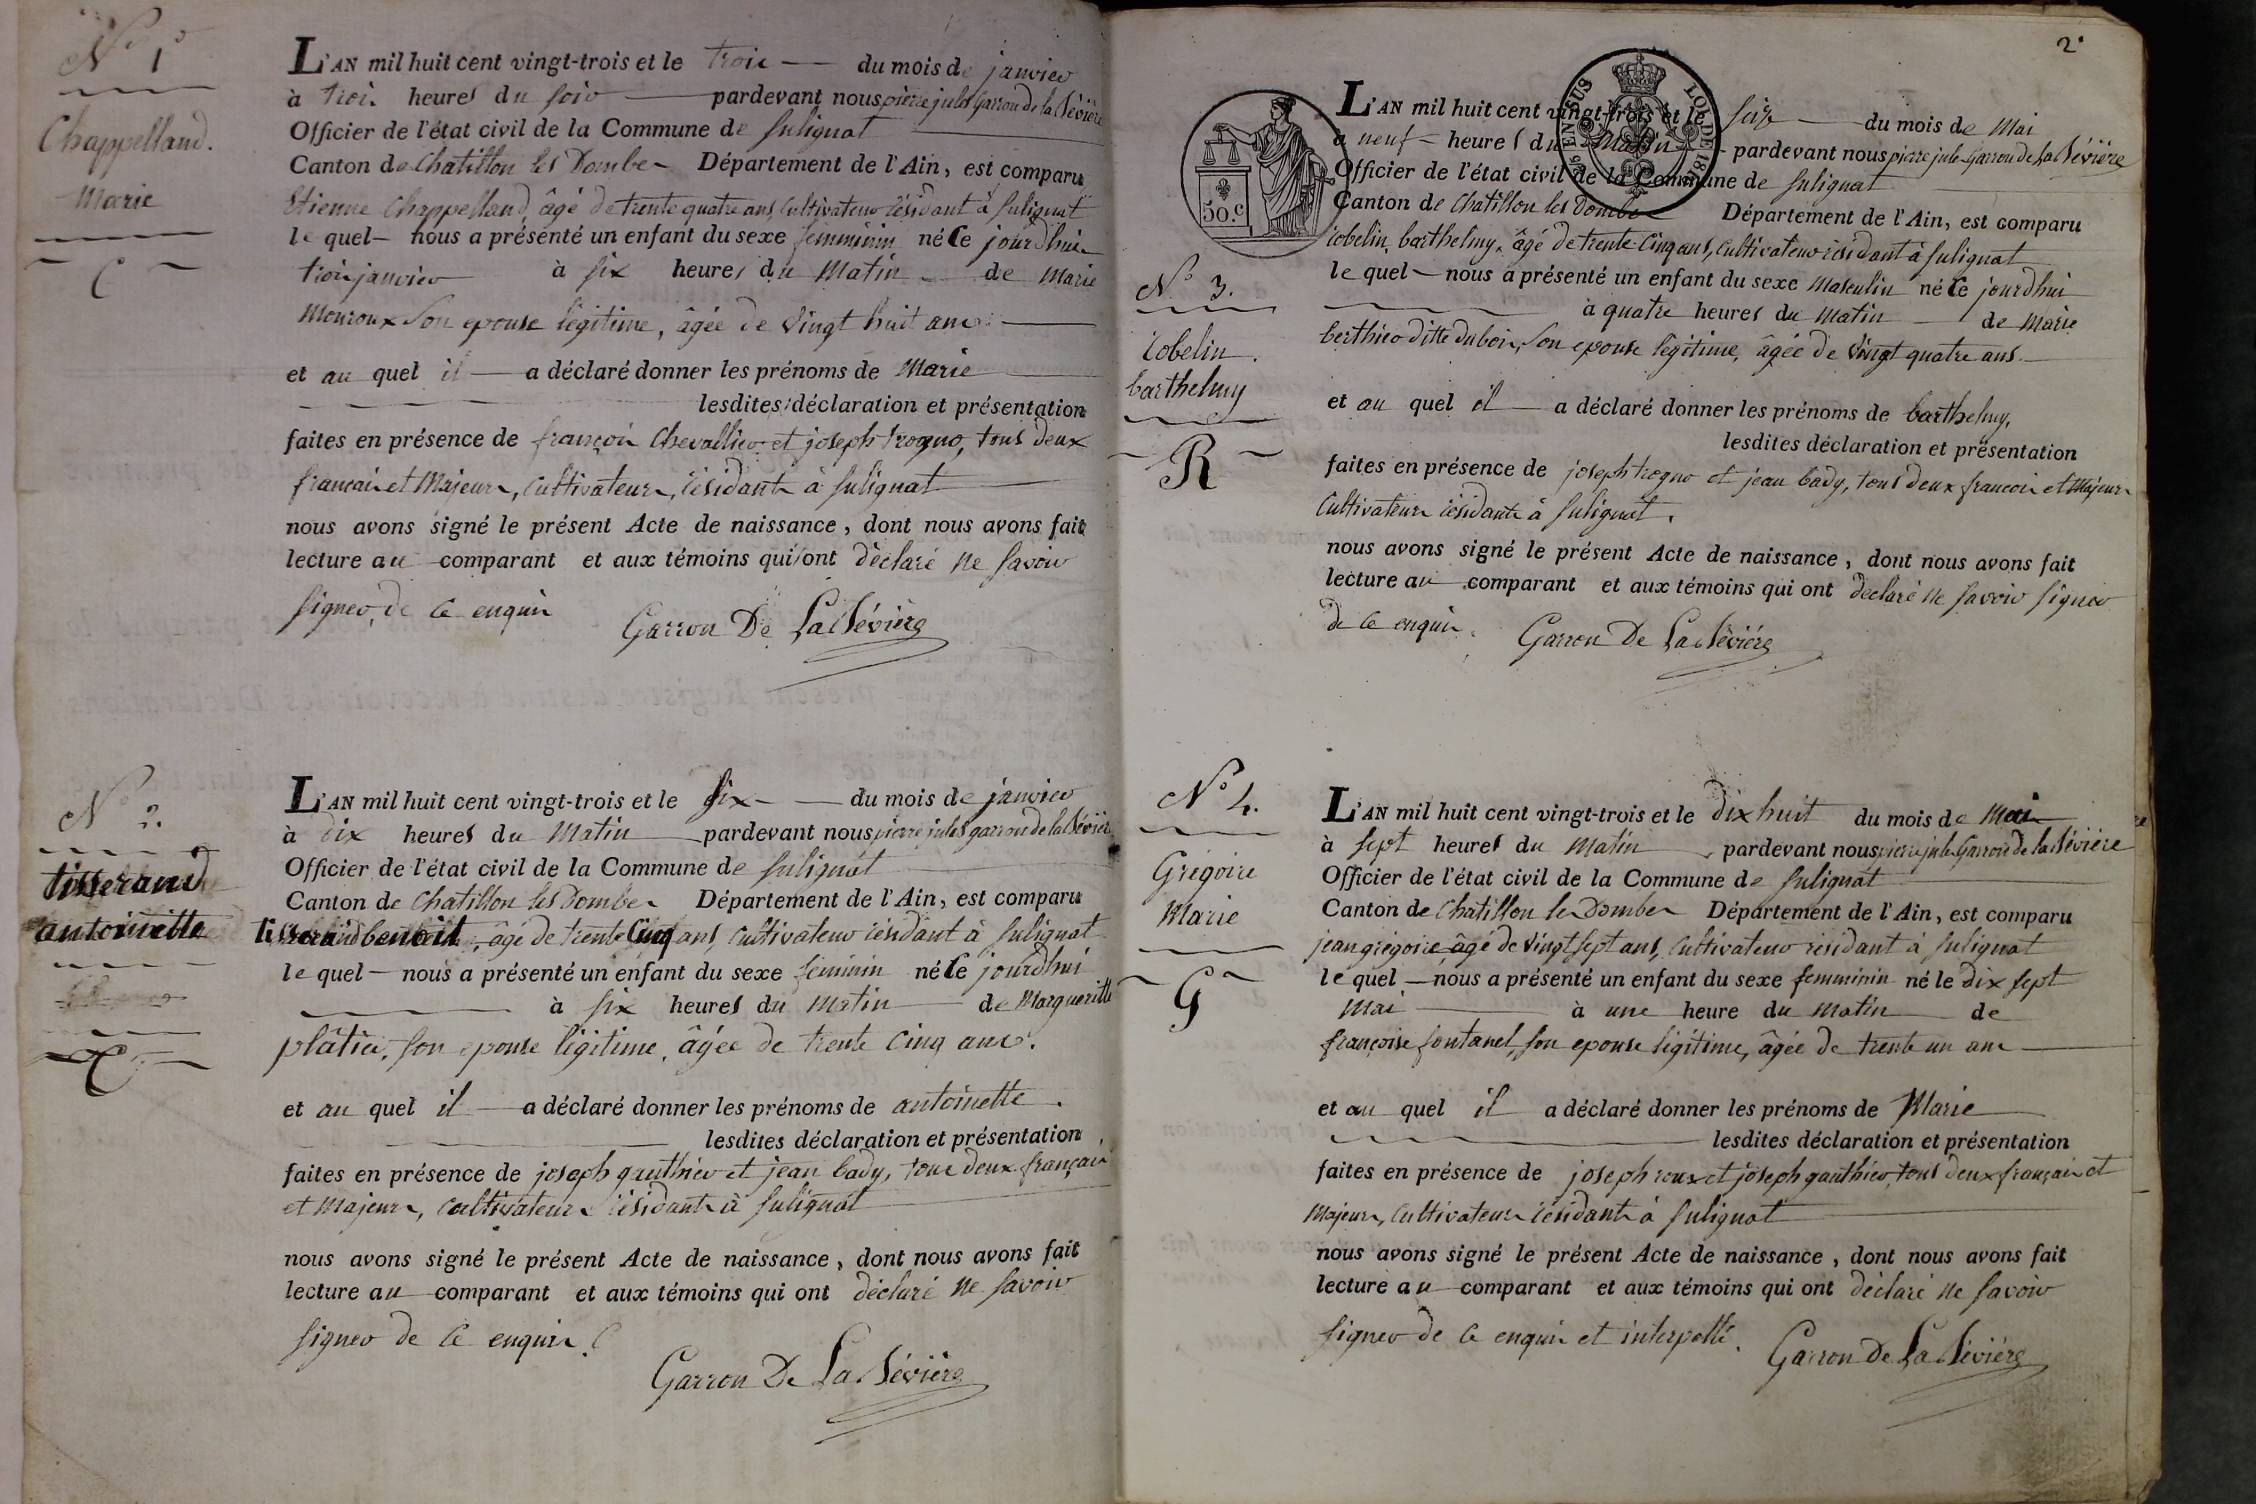 N° 1°
Chappelland.
Marie
C
L'AN mil huit cent vingt-trois et le trois du mois de janvier
à trois heures du soir pardevant nous pierre jules Garron de la Sévière
Officier de l'état civil de la Commune de Sulignat
Canton de Chatillon les Dombes Département de l'Ain, est comparu
Etienne Chappelland, âgé de trente quatre ans, cultivateur résidant à Sulignat
le quel nous a présenté un enfant du sexe femminin né Ce jourd'hui
trois janvier à six heures du Matin de Marie
Mouroux Son epouse légitime, âgée de vingt huit ans.
et au quel il a déclaré donner les prénoms de Marie
lesdites déclaration et présentation
faites en présence de françois Chevallier et joseph trogno, tous deux
français et Majeurs, cultivateurs, résidants à Sulignat
nous avons signé le présent Acte de naissance, dont nous avons fait
lecture au comparant et aux témoins qui ont déclaré ne savoir
signer, de ce enquis
Garron De La Sévière
N° 2.
tisserand
antoinette
C
L'AN mil huit cent vingt-trois et le six du mois de janvier
à dix heures du Matin pardevant nous pierre jules garron de la Sévière
Officier de l'état civil de la Commune de Sulignat
Canton de Chatillon les Dombes Département de l'Ain, est comparu
tisserand benoit, âgé de trente Cinq ans, cultivateur résidant à Sulignat
le quel nous a présenté un enfant du sexe féminin né Ce jourd'hui
à six heures du Matin de Margueritte
plâtier, son epouse légitime, âgée de trente cinq ans.
et au quel il a déclaré donner les prénoms de antoinette.
lesdites déclaration et présentation
faites en présence de joseph gauthier et jean bady, tous deux français
et Majeurs, cultivateurs résidants à Sulignat
nous avons signé le présent Acte de naissance, dont nous avons fait
lecture au comparant et aux témoins qui ont déclaré ne savoir
signer de ce enquis.
Garron De La Sévière
2.
50.c
EN SUS
LOI DE
N° 3.
Cobelin.
barthelmy
R
L'AN mil huit cent vingt-trois et le seize du mois de Mai
à neuf heures du Matin pardevant nous pierre jules Garron de La Sévière
Officier de l'état civil de la Commune de Sulignat
Canton de Chatillon les Dombes Département de l'Ain, est comparu
Cobelin barthelmy, âgé de trente Cinq ans, cultivateur résidant à Sulignat
le quel nous a présenté un enfant du sexe Masculin né Ce jourd'hui
à quatre heures du Matin de Marie
berthier ditte dubois, Son epouse légitime, âgée de vingt quatre ans.
et au quel il a déclaré donner les prénoms de barthelmy,
lesdites déclaration et présentation
faites en présence de joseph trogno et jean bady, tous deux francois et Majeurs
Cultivateurs résidants à Sulignat.
nous avons signé le présent Acte de naissance, dont nous avons fait
lecture au comparant et aux témoins qui ont déclaré ne savoir signer
de ce enquis.
Garron De La Sévière
N° 4.
Grégoire
Marie
G
L'AN mil huit cent vingt-trois et le dix huit du mois de Mai
à sept heures du Matin pardevant nous pierre jules Garron de la Sévière
Officier de l'état civil de la Commune de Sulignat
Canton de Chatillon les Dombes Département de l'Ain, est comparu
jean grégoire, âgé de vingt sept ans, cultivateur résidant à Sulignat
le quel nous a présenté un enfant du sexe femminin né le dix sept
Mai à une heure du Matin de
françoise fontanel, son epouse légitime, âgée de trente un ans
et au quel il a déclaré donner les prénoms de Marie
lesdites déclaration et présentation
faites en présence de joseph roux et joseph gauthier, tous deux français et
Majeurs, cultivateurs résidants à Sulignat
nous avons signé le présent Acte de naissance, dont nous avons fait
lecture au comparant et aux témoins qui ont déclaré ne savoir
signer de ce enquis et interpellé.
Garron De La Sévière